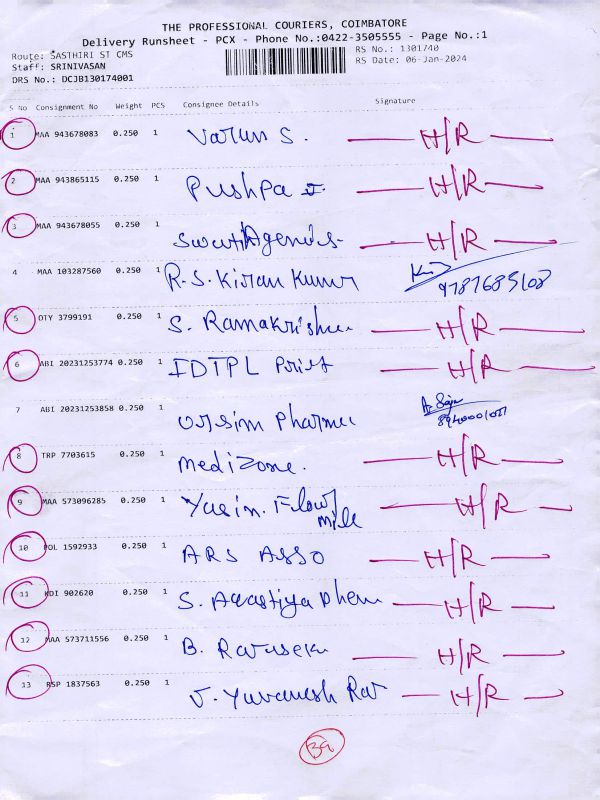 THE PROFESSIONAL COURIERS, COIMBATORE
Delivery Runsheet - PCX - Phone No.:0422-3505555 - Page No.:1
Route: SASTHIRI ST CMS RS No.: 1301740
Staff: SRINIVASAN RS Date: 06-Jan-2024
DRS No.: DCJB130174001
S No Consignment No Weight PCS Consignee Details Signature
1 MAA 943678083 0.250 1 Varun S. H/R
2 MAA 943865115 0.250 1 Pushpa I. H/R
3 MAA 943678055 0.250 1 Swati Agencis H/R
4 MAA 103287560 0.250 1 R.S. Kiran Kumar
9787685108
5 OTY 3799191 0.250 1 S. Ramakrishn H/R
6 ABI 20231253774 0.250 1 IDTPL Print H/R
7 ABI 20231253858 0.250 1 Pharma
8 TRP 7703615 0.250 1 medizone. H/R
9 MAA 573096285 0.250 1 Yasin. Flour H/R
Mill
10 POL 1592933 0.250 1 ARS ASSO H/R
11 KDI 902620 0.250 1 S. H/R
12 MAA 573711556 0.250 1 B. H/R
13 RSP 1837563 0.250 1 V. Yuvanesh H/R
39